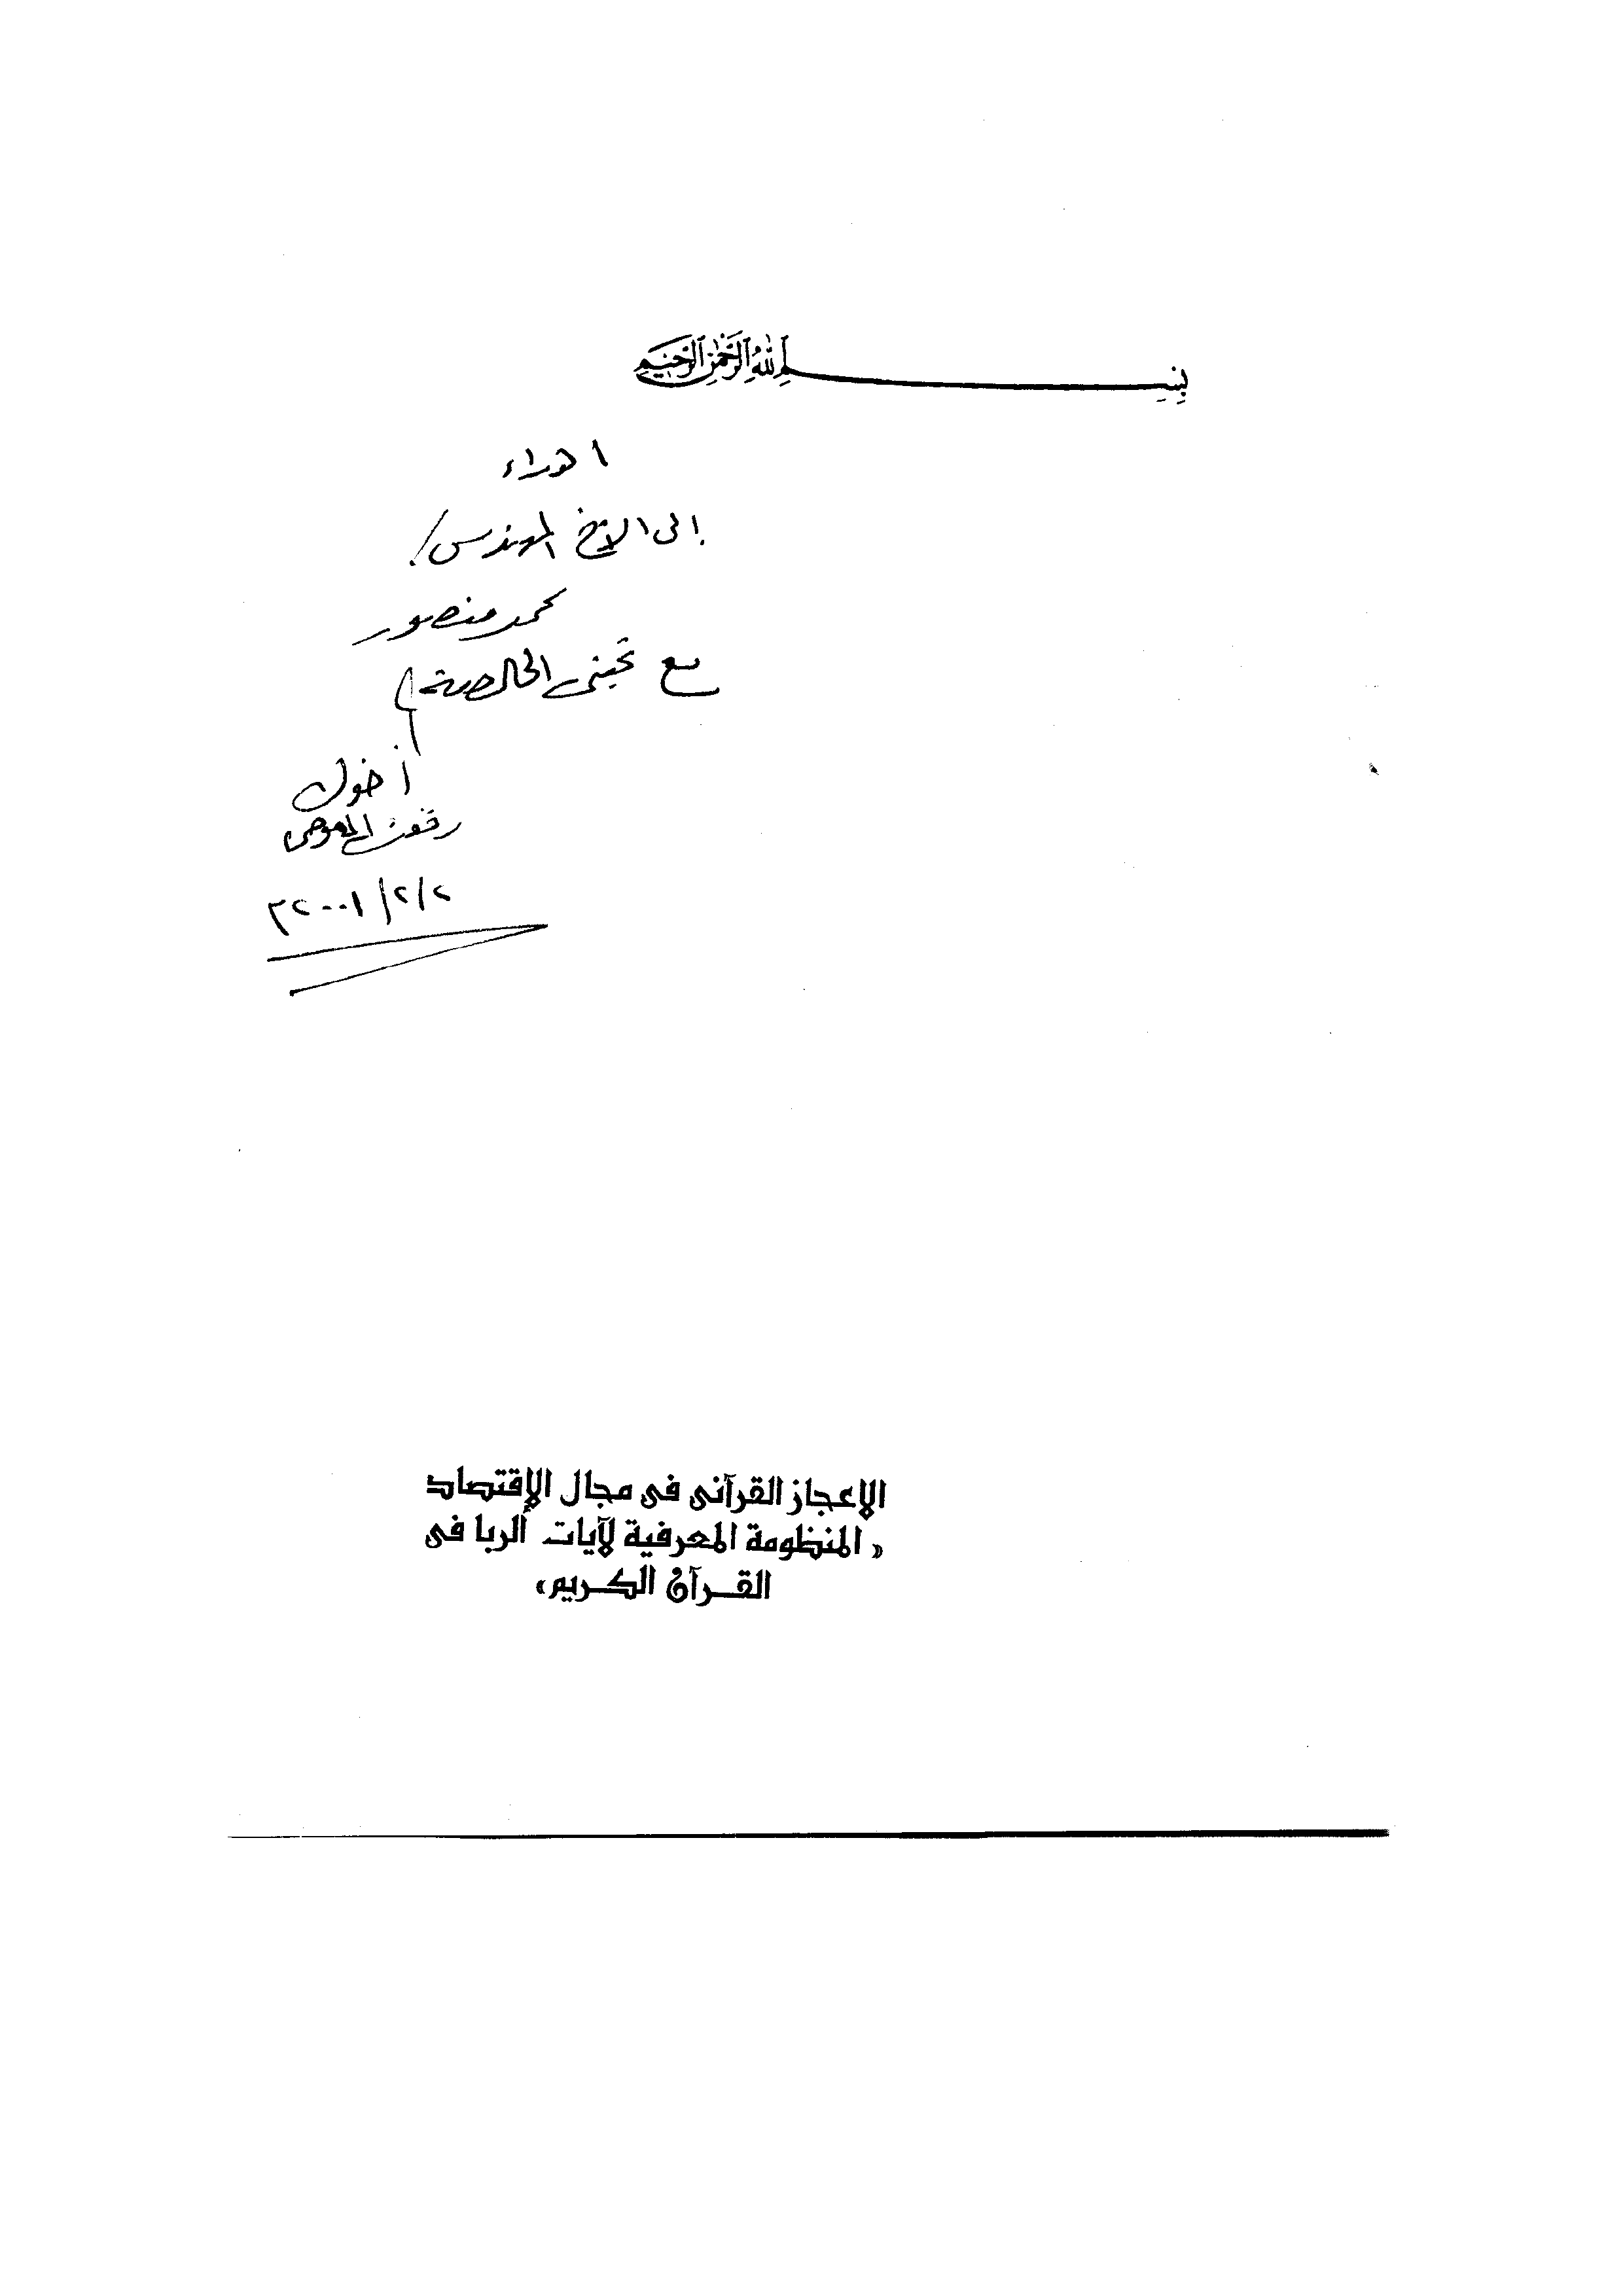 بِسْمِ اللَّهِ الرَّحْمَٰنِ الرَّحِيمِ
اهداء
إلى الأخ المهندس /
محمد منصور
مع تحيتى الخالصة ،
أخوك
رفعت العوضى
٢/٢/٢٠٠١م
الإعجاز القرآنى فى مجال الإقتصاد
« المنظومة المعرفية لآيات الربا فى
القرآن الكريم»